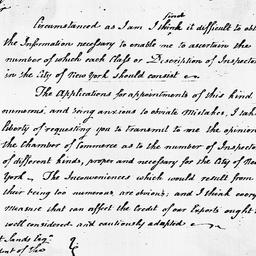 find
Circumstanced as I am I think it difficult to obt
the Information necessary to enable me to ascertain the
number of which each Class or Discription of Inspector
in the City of New York should consist
The Applications for appointments of this kind
numerous, and being anxious to obviate Mistakes, I take
liberty of requesting you to transmit to me the opinion
the Chamber of Commerce as to the number of Inspector
of different kinds, proper and necessary for the City of New
York The Inconveniences which would result from
their being too numerous are obvious; and I think every
measure that can affect the Credit of our Exports ought t
well considered and cautiously adopted
t Sands Esqr
dent of